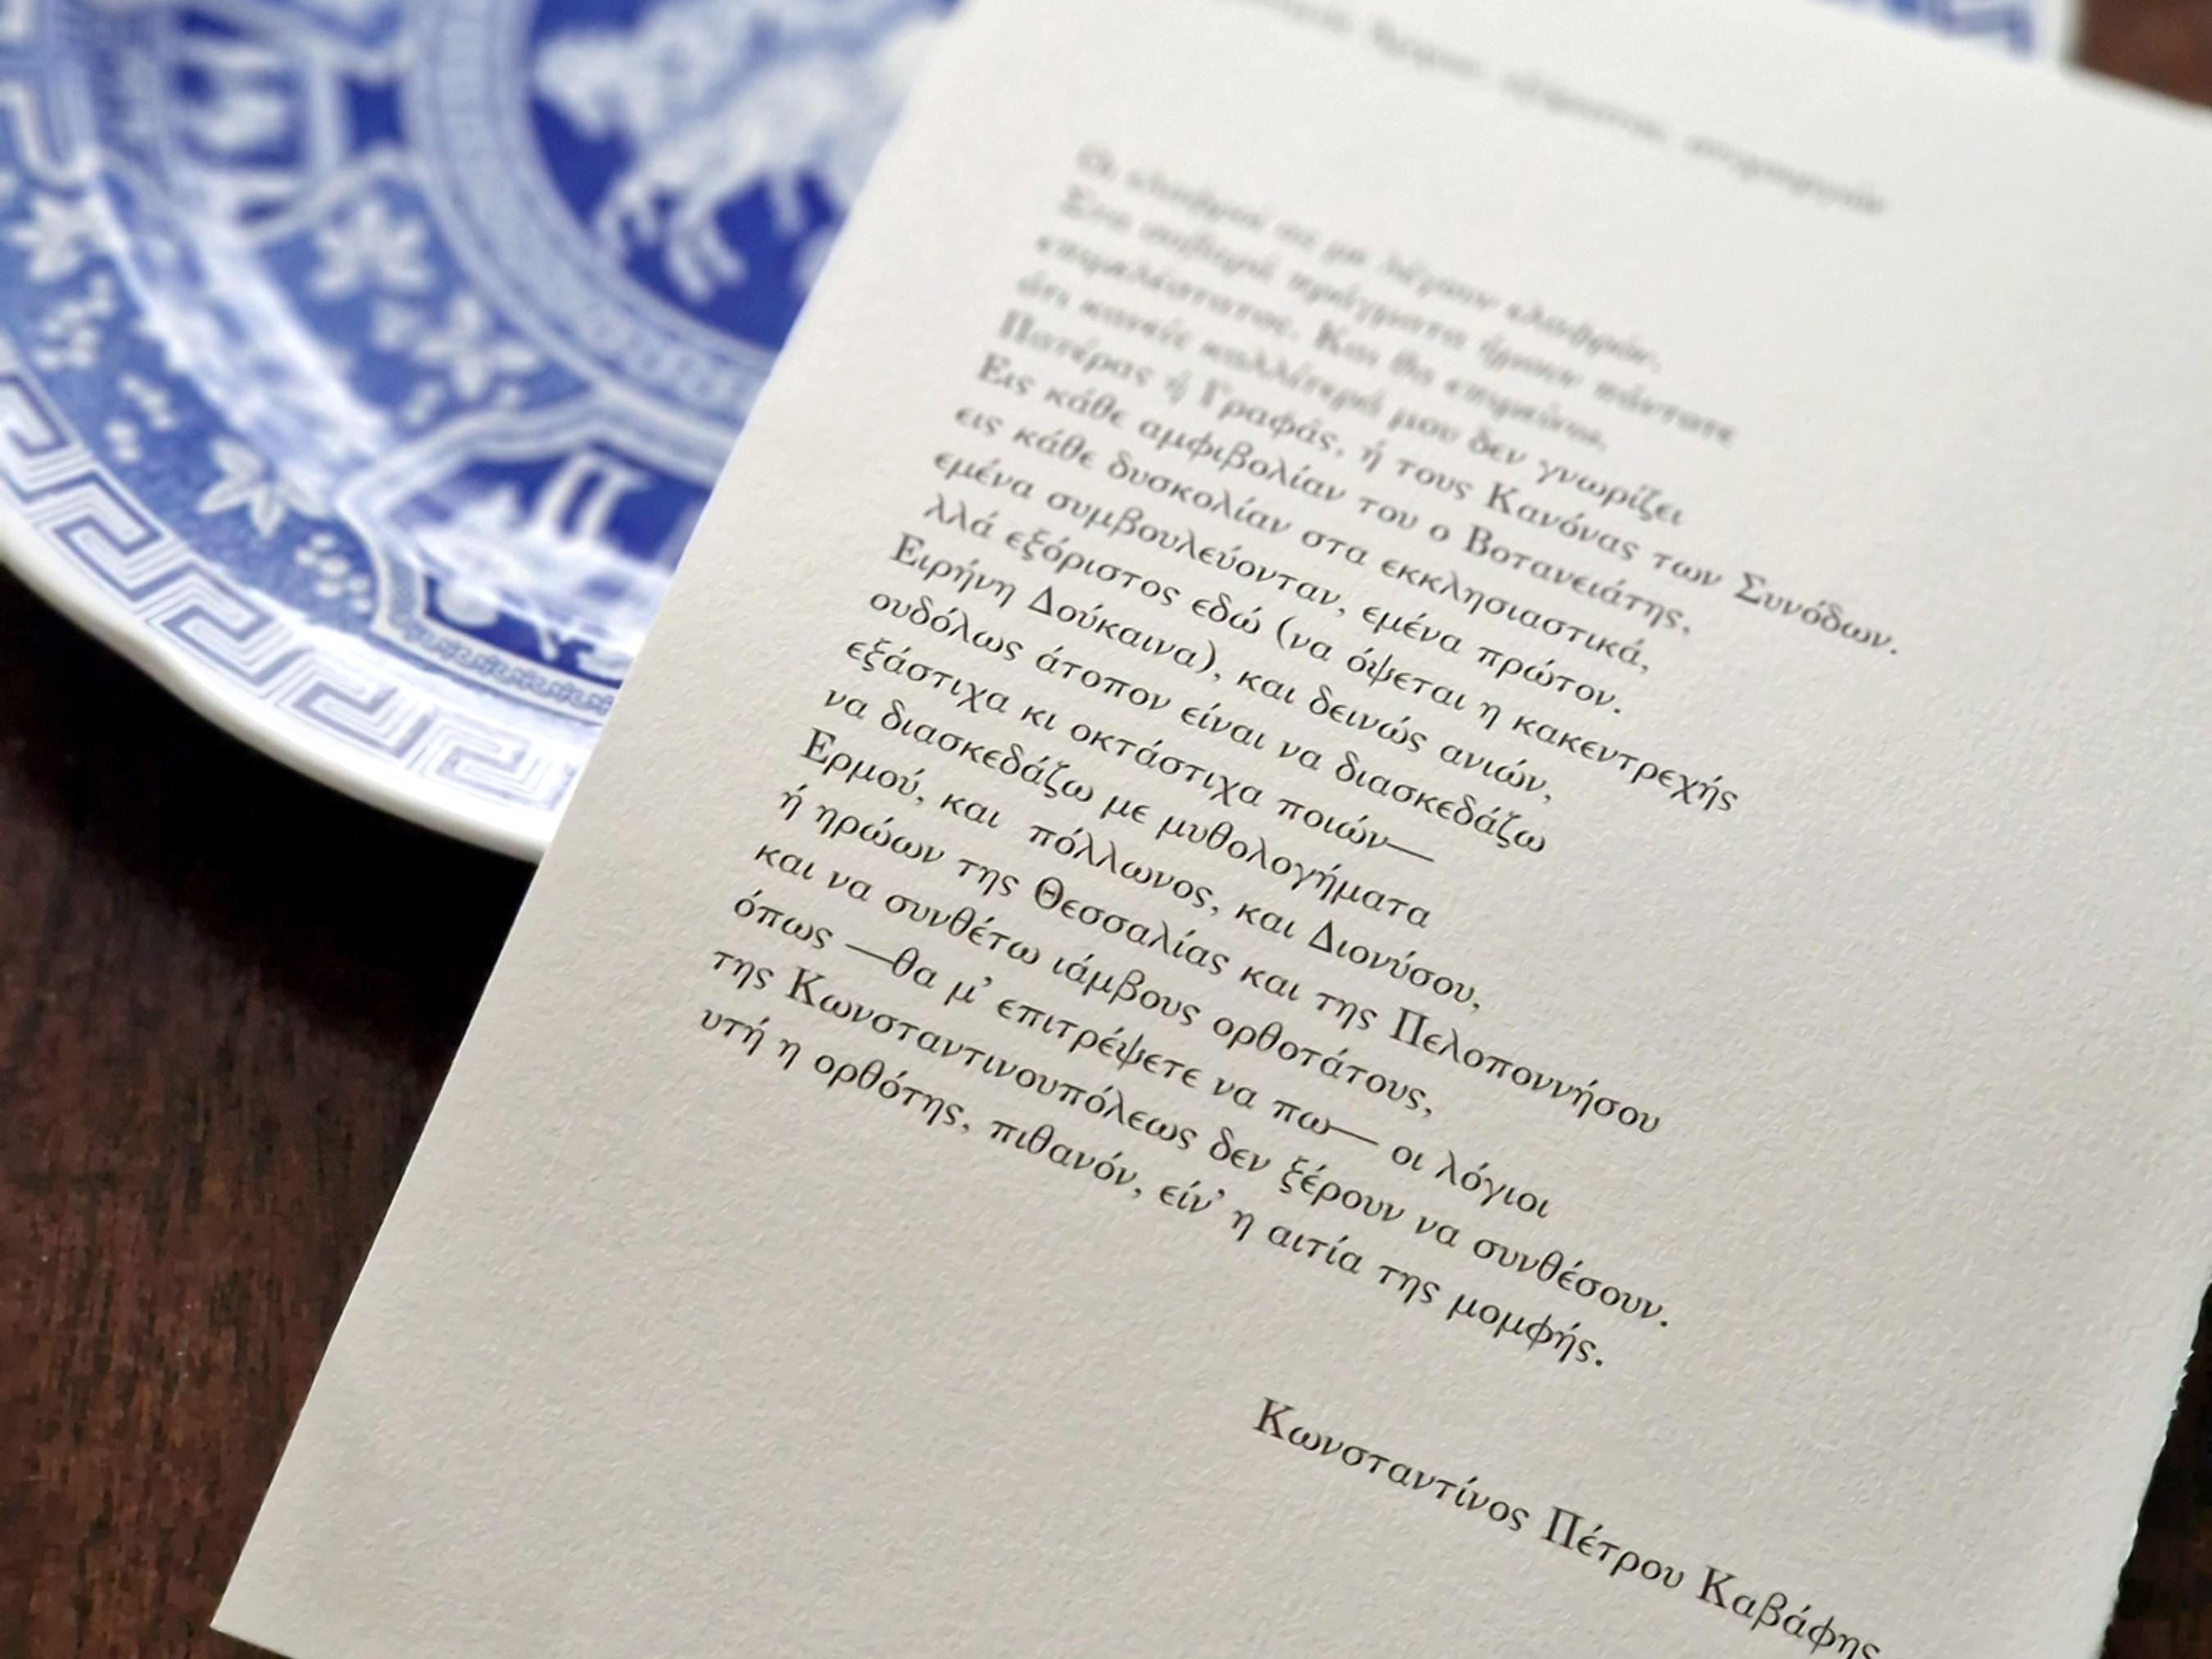 εξόριστος, στιχουργών
Οι ελαφροί ας με λέγουν ελαφρόν.
Στα σοβαρά πράγματα ήμουν πάντοτε
επιμελέστατος. Και θα επιμείνω,
ότι κανείς καλλίτερά μου δεν γνωρίζει
Πατέρας ή Γραφάς, ή τους Κανόνας των Συνόδων.
Εις κάθε αμφιβολίαν του ο Βοτανειάτης,
εις κάθε δυσκολίαν στα εκκλησιαστικά,
εμένα συμβουλεύονταν, εμένα πρώτον.
λλά εξόριστος εδώ (να όψεται η κακεντρεχής
Ειρήνη Δούκαινα), και δεινώς ανιών,
ουδόλως άτοπον είναι να διασκεδάζω
εξάστιχα κι οκτάστιχα ποιών—
να διασκεδάζω με μυθολογήματα
Ερμού, και πόλλωνος, και Διονύσου,
ή ηρώων της Θεσσαλίας και της Πελοποννήσου
και να συνθέτω ιάμβους ορθοτάτους,
όπως —θα μ' επιτρέψετε να πω— οι λόγιοι
της Κωνσταντινουπόλεως δεν ξέρουν να συνθέσουν.
υτή η ορθότης, πιθανόν, είν' η αιτία της μομφής.
Κωνσταντίνος Πέτρου Καβάφης